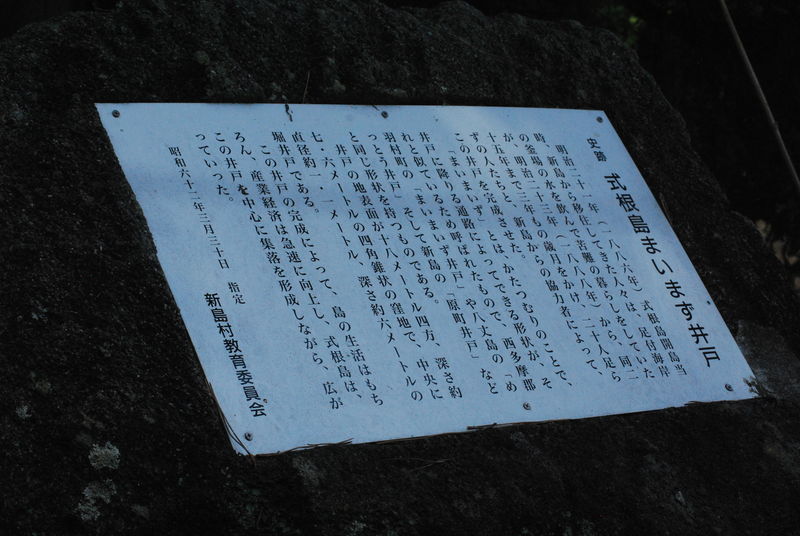 史跡 式根島まいまず井戸
明治二十一年(一八八六年)、式根島開島当
時、新島から移住してきた人々は、足付海岸
の釜場の水を飲んで苦難の暮らしをしていた
が、明治二十三年(一八八八年)から、同二
十五年まで三年もの歳月をかけ、二十人足ら
ずの人たちと、新島からの協力者によって、
この井戸を完成させた。
「まいまず」とは、かたつむりのことで、
井戸に降りる通路によってできる形状が、そ
れと似ているため呼ばれたもので、西多摩郡
羽村町の「まいまいず井戸」や八丈島の「め
っとう井戸」そして新島の「原町井戸」など
と同じ形状を持つものである。
井戸の地表面が十八メートル四方、深さ約
七・六メートルの四角錐状の窪地で、中央に
直径約一・一メートル、深さ約六メートルの
堀井戸である。
この井戸の完成によって、島の生活はもち
ろん、産業経済は急速に向上し、式根島は、
この井戸を中心に集落を形成しながら、広が
っていった。
昭和六十二年三月三十日 指定
新島村教育委員会